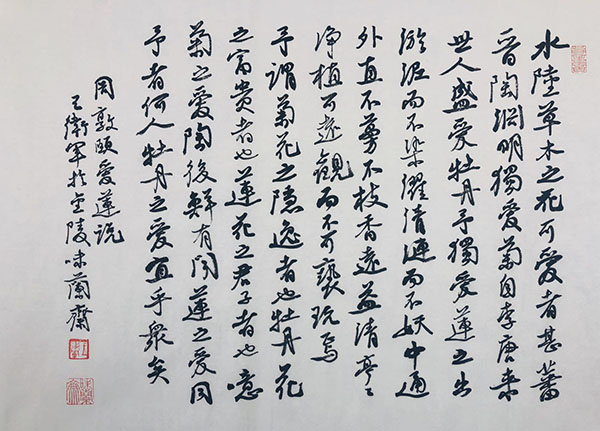 水陸草木之花可愛者甚蕃
晉陶淵明獨愛菊自李唐來
世人盛愛牡丹予獨愛蓮之出
淤泥而不染濯清漣而不妖中通
外直不蔓不枝香遠益清亭〻
淨植可遠觀而不可褻玩焉
予謂菊花之隱逸者也牡丹花
之富貴者也蓮花之君子者也噫
菊之愛陶後鮮有聞蓮之愛同
予者何人牡丹之愛宜乎眾矣
周敦頤愛蓮說
王衛軍於金陵味蘭齋